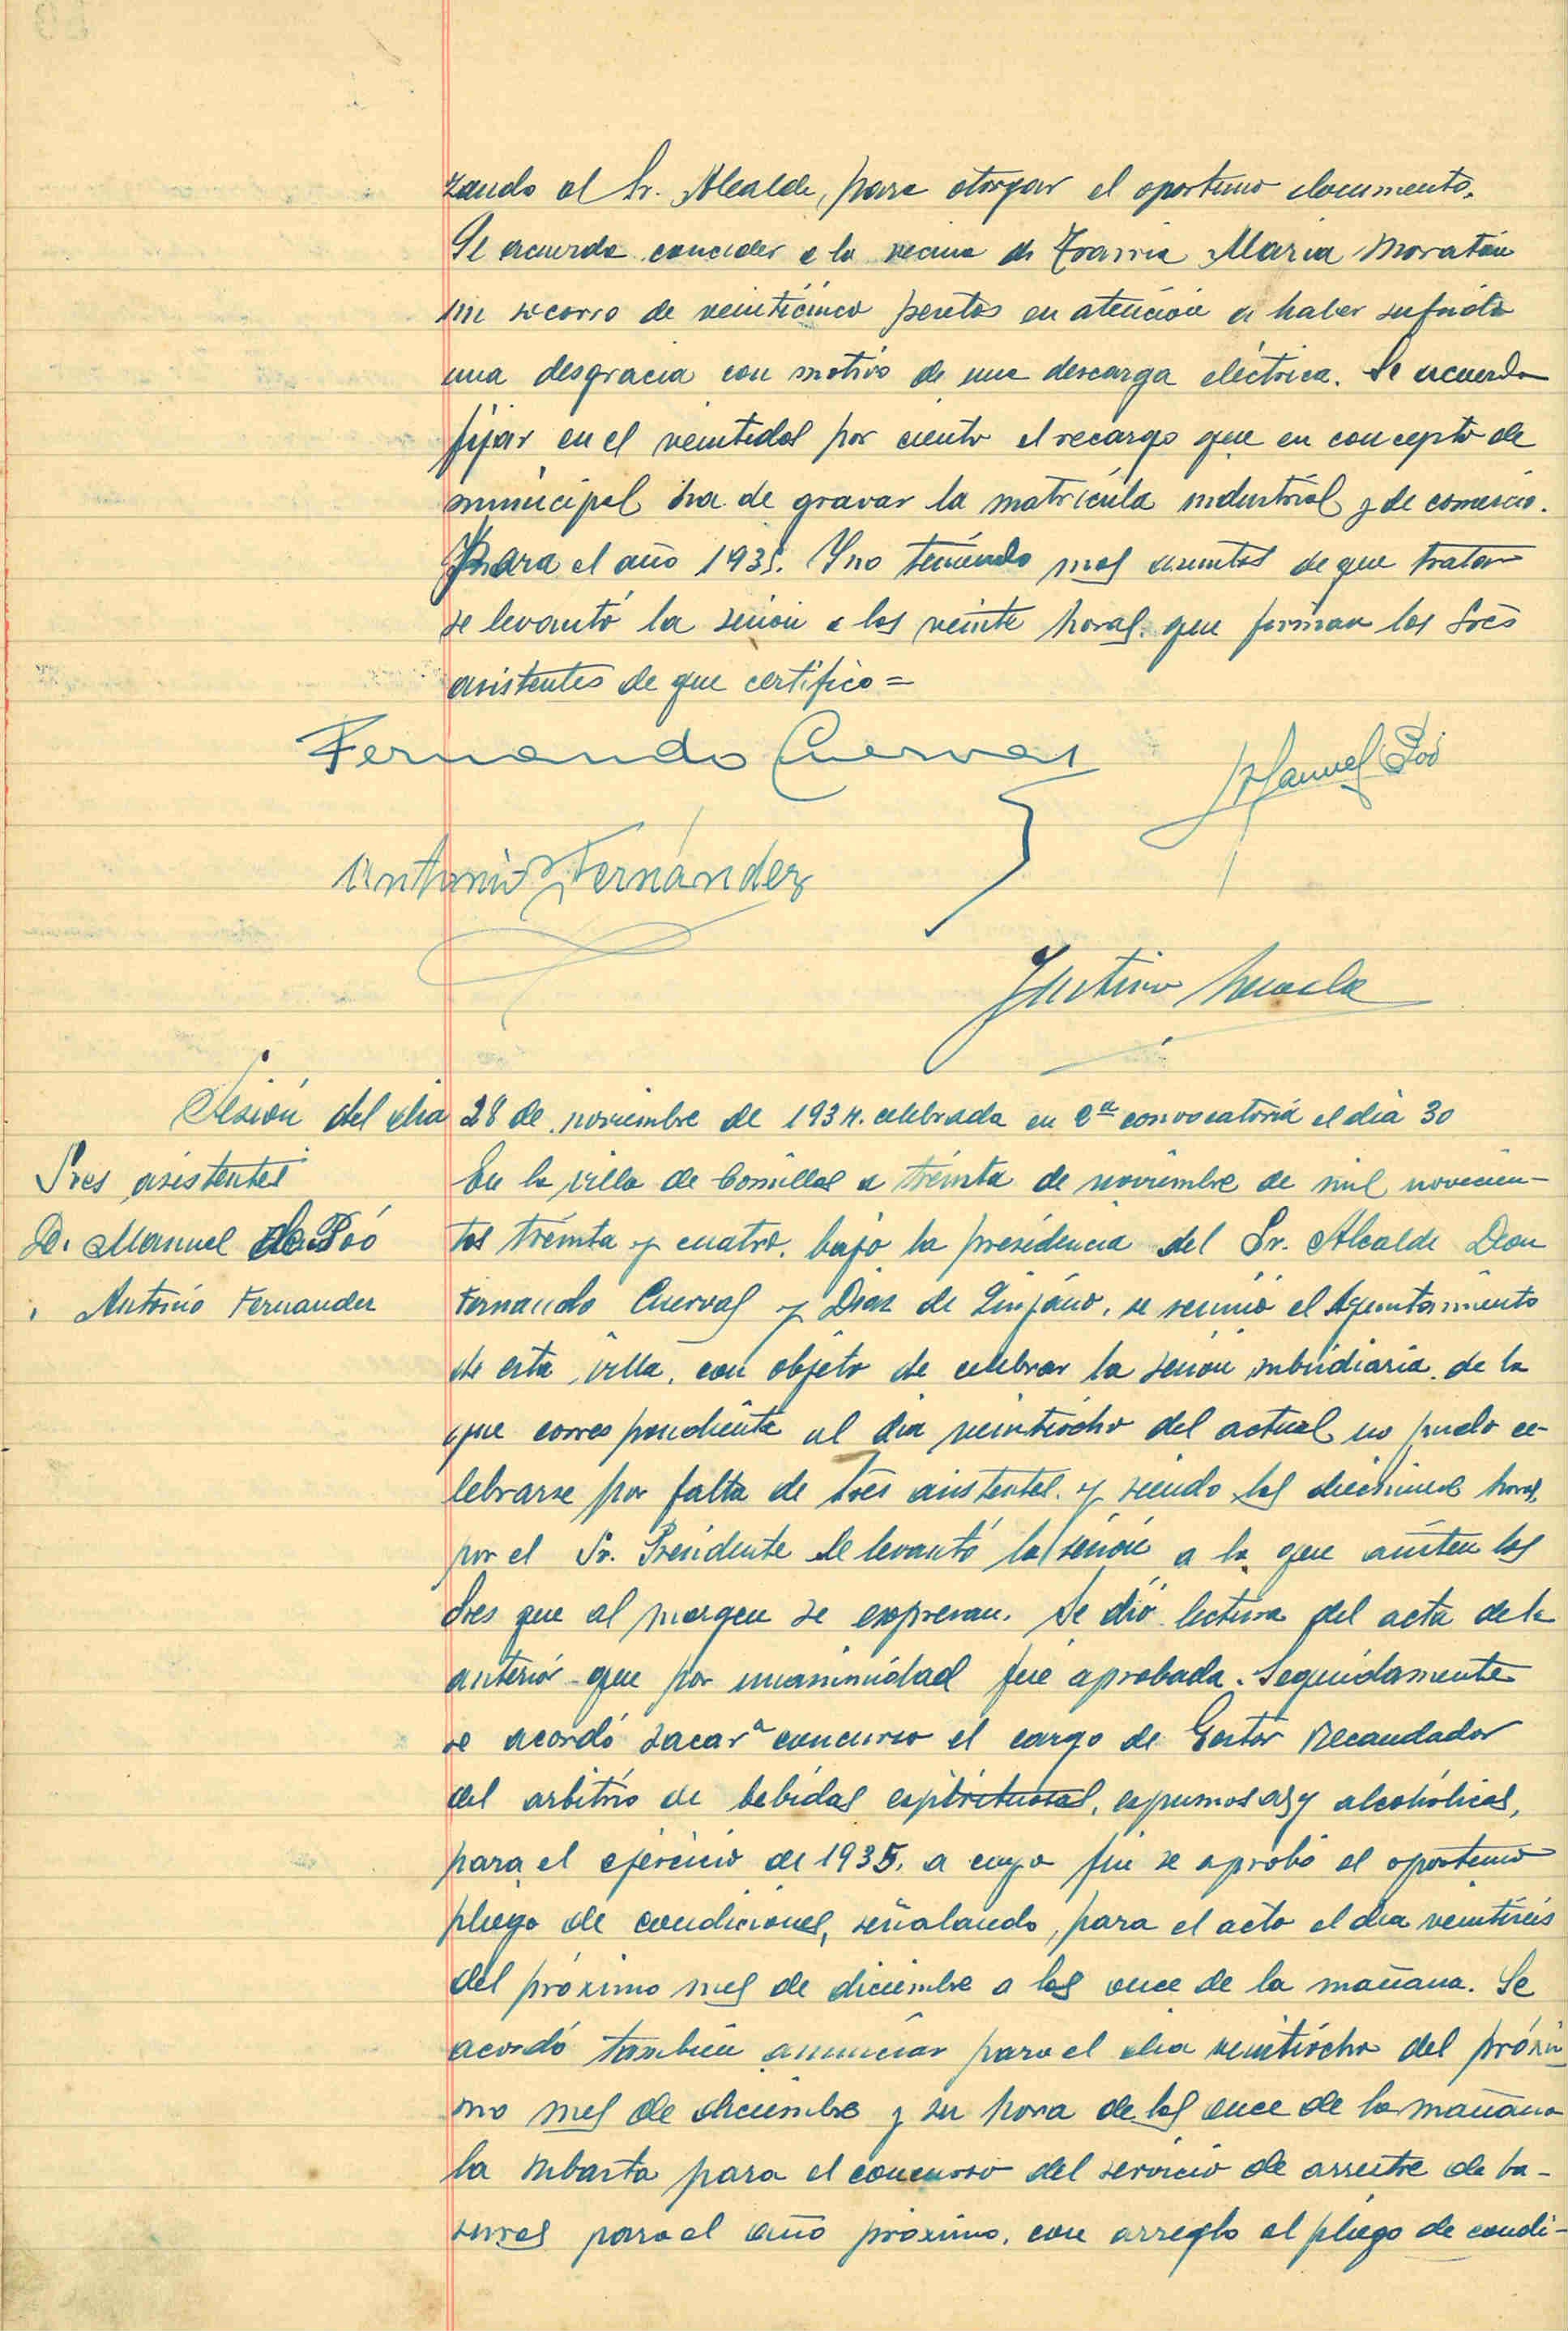 zando al Sr. Alcalde, para otorgar el oportuno documento.
Se acuerda conceder a la vecina de Trasvia Maria Moratón
un socorro de veinticinco pesetas en atención a haber sufrido
una desgracia con motivo de una descarga eléctrica. Se acuerda
fijar en el veintidos por ciento el recargo que en concepto de
municipal ha de gravar la matrícula industrial y de comercio.
Para el año 1935. Y no teniendo mas asuntos de que tratar
se levantó la sesión a las veinte horas. que firman los Sres
asistentes de que certifico =
Fernando Cuervas
Manuel Poó
Antonio Fernández
Justino
Sesión del dia 28 de noviembre de 1934. celebrada en 2ª convocatoria el dia 30
Sres asistentes
D. Manuel de Poó
" Antonio Fernandez
En la villa de Comillas a treinta de noviembre de mil novecien-
tos treinta y cuatro. bajo la presidencia del Sr. Alcalde Don
Fernando Cuervas y Diaz de Quijano, se reunió el Ayuntamiento
de esta villa, con objeto de celebrar la sesión subsidiaria de la
que correspondiente al dia veintiocho del actual no pudo ce-
lebrarse por falta de Sres asistentes. y siendo las diecinueve horas,
por el Sr. Presidente se levantó la sesión a la que asisten los
Sres que al margen se expresan. Se dió lectura del acta de la
anterior que por unanimidad fué aprobada. Seguidamente
se acordó sacar a concurso el cargo de Gestor Recaudador
del arbitrio de bebidas espirituosas, espumosas y alcohólicas,
para el ejercicio de 1935. a cuyo fin se aprobó el oportuno
pliego de condiciones, señalando, para el acto el dia veintiseis
del próximo mes de diciembre a las once de la mañana. Se
acordó tambien anunciar para el dia veintiocho del próxi
mo mes de diciembre y su hora de las once de la mañana
la subasta para el concurso del servicio de arrastre de ba-
suras para el año próximo, con arreglo al pliego de condi-